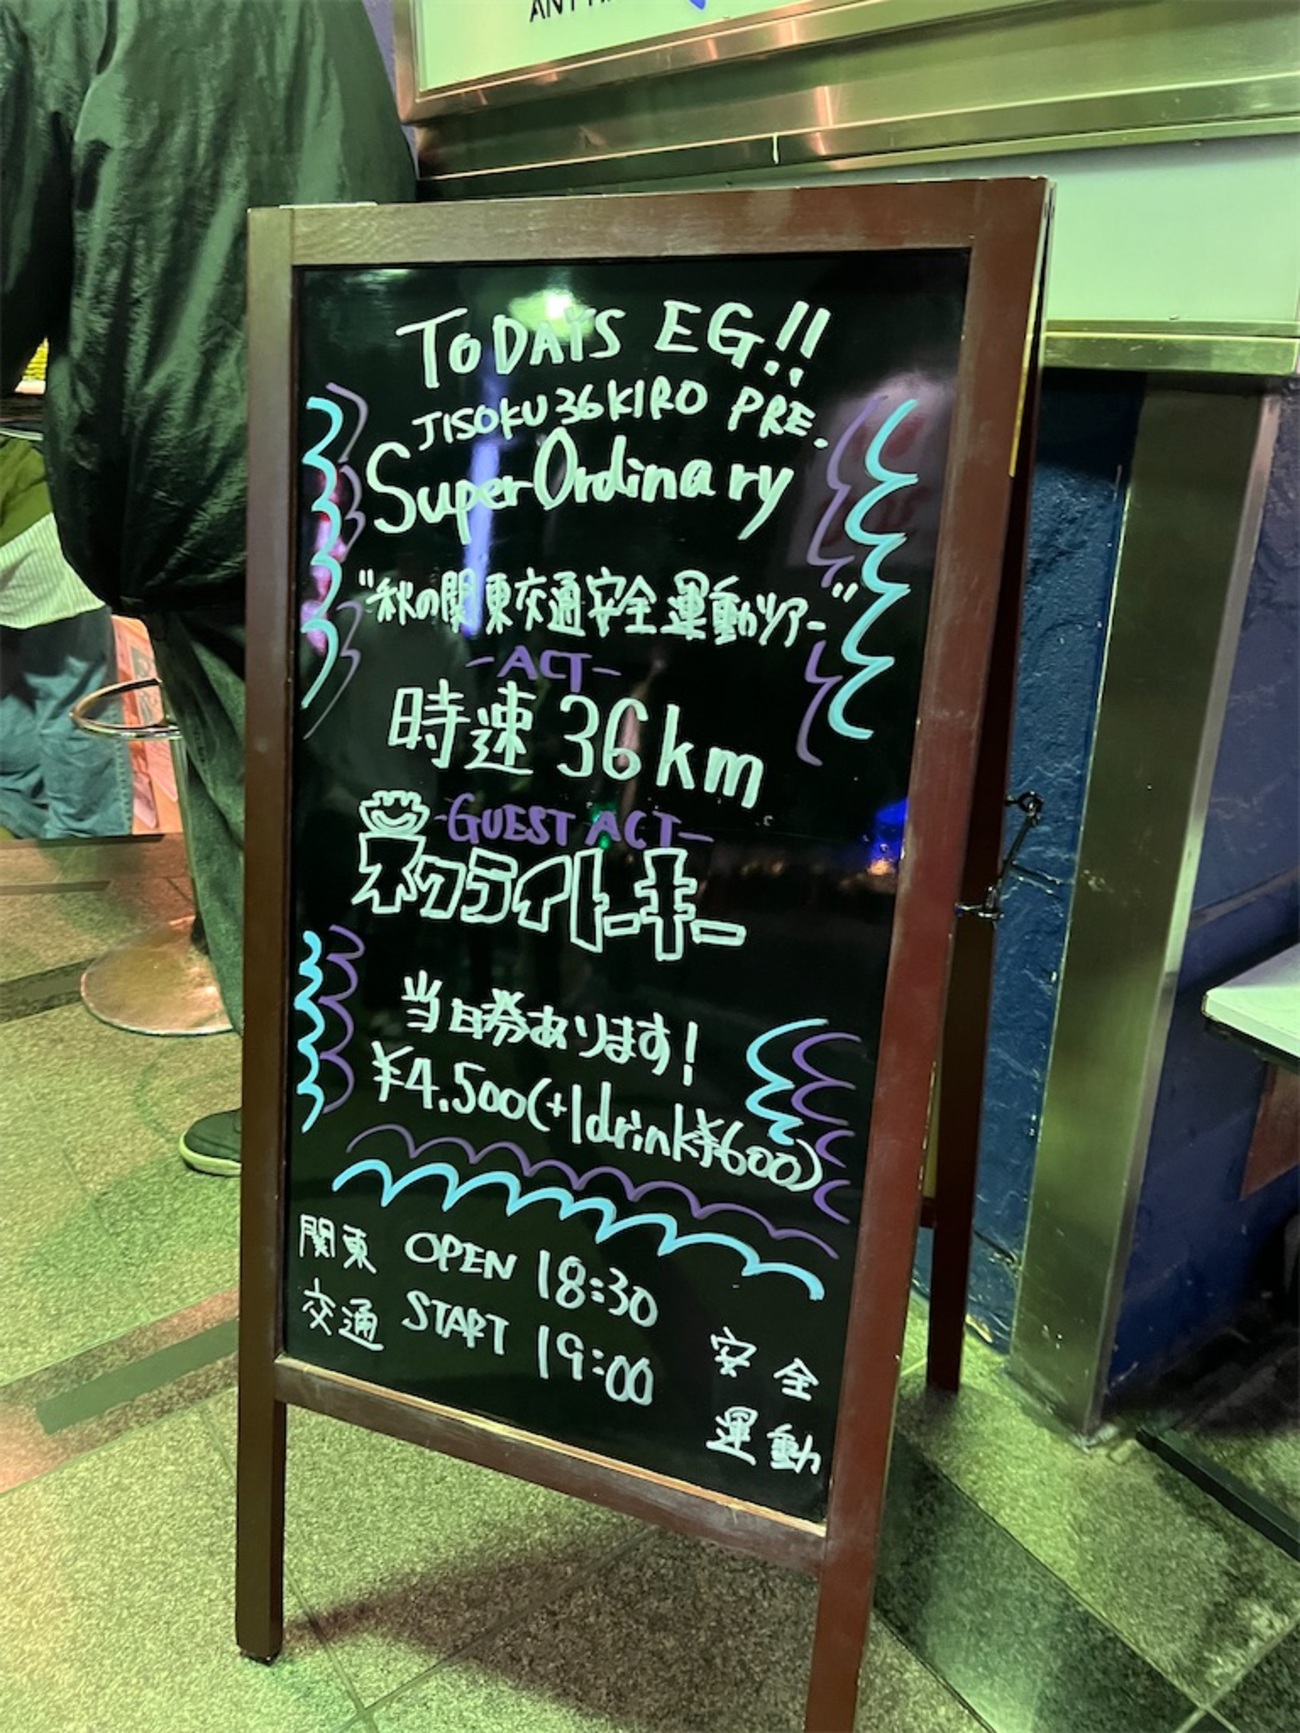 TODAYS EG!!
JISOKU36KIRO PRE.
SuperOrdinary
"秋の関東交通安全運動ツアー"
-ACT-
時速36km
-GUEST ACT-
ネクライトーキー
当日券あります!
¥4.500(+1drink¥600)
関東 OPEN 18:30
交通 START 19:00
安全
運動